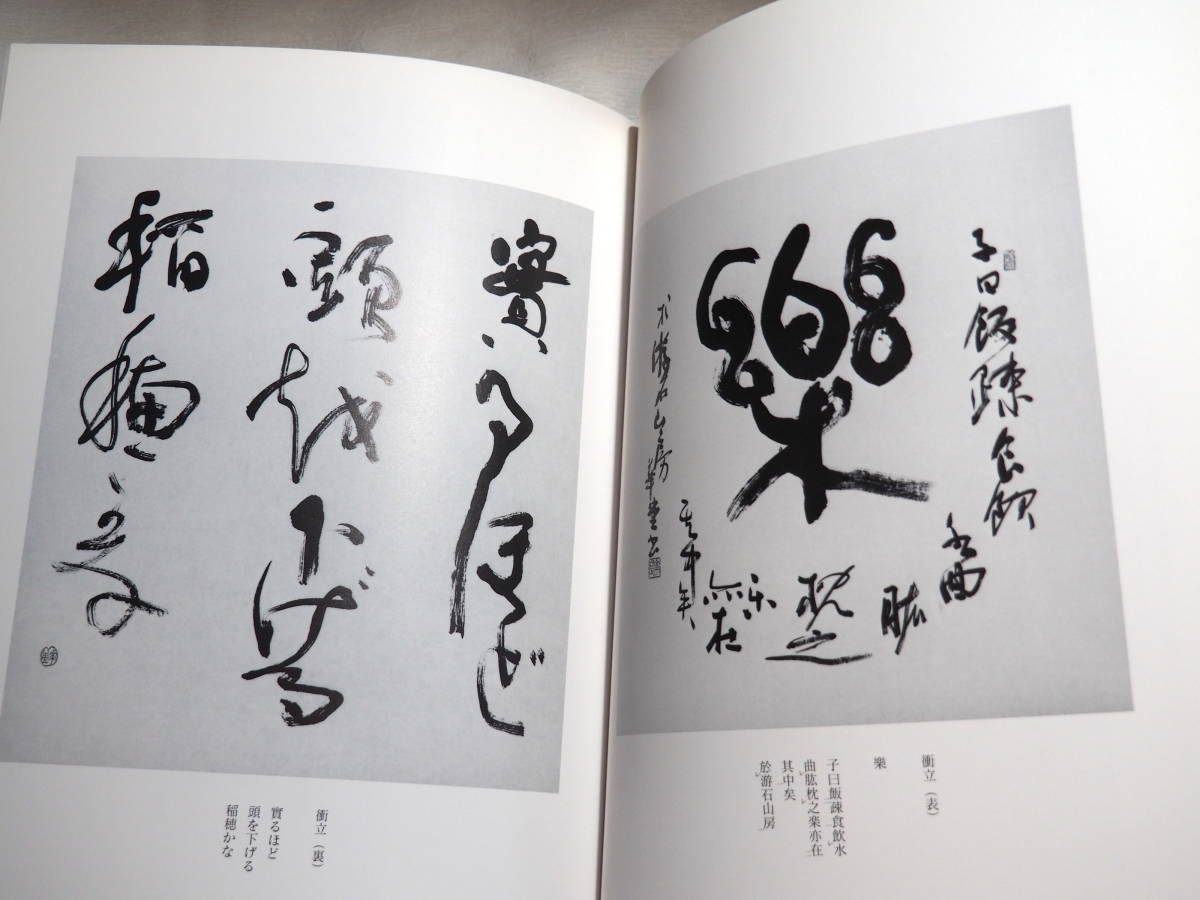 子曰飯疎食飲
水曲
肱
枕之
樂
楽亦在
其中矣
於游石山房 華堂書
衝立（表）
樂
子曰飯疎食飲水
曲肱枕之楽亦在
其中矣
於游石山房
實るほど
頭を下げる
稲穂かな
衝立（裏）
實るほど
頭を下げる
稲穂かな